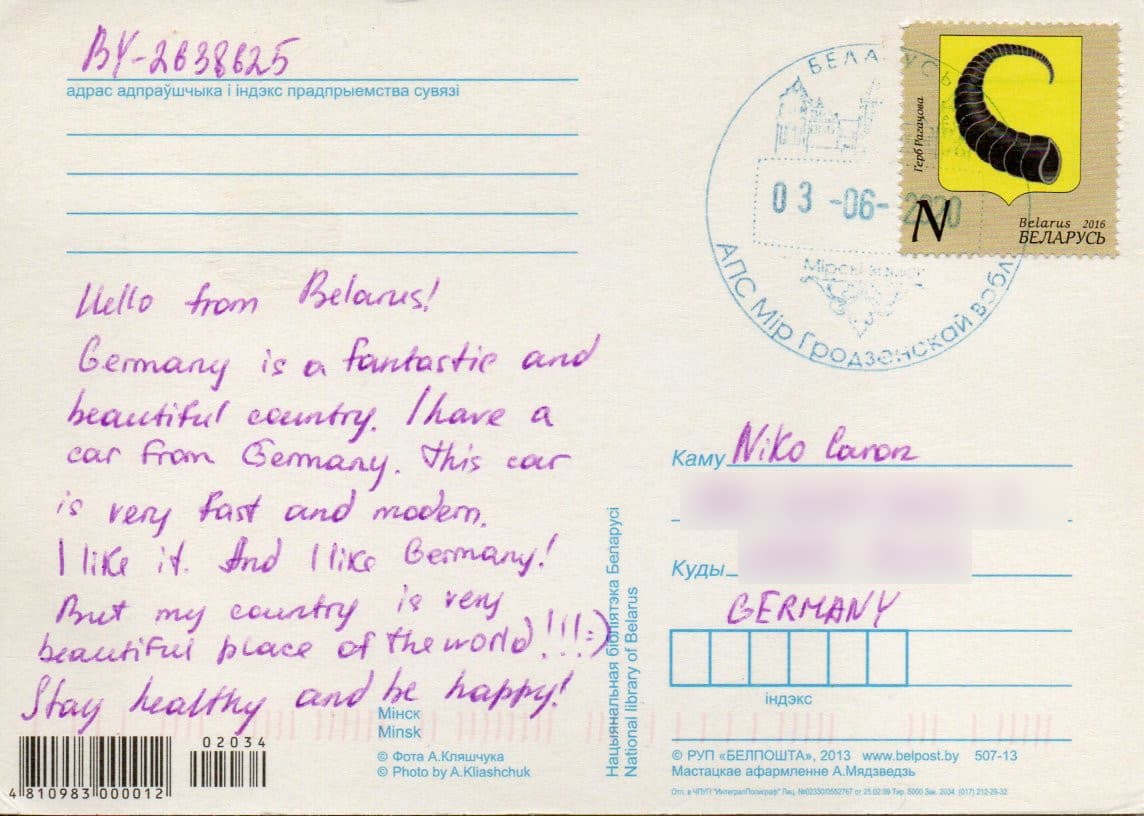 BY-2638625
адрас адпраўшчыка і індэкс прадпрыемства сувязі
Hello from Belarus!
Germany is a fantastic and
beautiful country. I have a
car from Germany. This car
is very fast and modern.
I like it. And I like Germany!
But my country is very
beautiful place of the world!!!:)
Stay healthy and be happy!
Мінск
Minsk
© Фота А.Кляшчука
© Photo by A.Kliashchuk
02034
4 810983 000012
Нацыянальная бібліятэка Беларусі
National library of Belarus
БЕЛАРУСЬ
03-06-2020
АПС Мір Гродзенскай вобл
Герб Рагачова
N
Belarus 2016
БЕЛАРУСЬ
Каму Niko
Куды
GERMANY
індэкс
© РУП «БЕЛПОШТА», 2013 www.belpost.by 507-13
Мастацкае афармленне А.Мядзведзь
Отп. в ЧПУП "ИнтегралПолиграф" Лиц. №02330/0552767 от 25.02.09 Тир. 5000 Зак. 2034 (017) 212-29-32